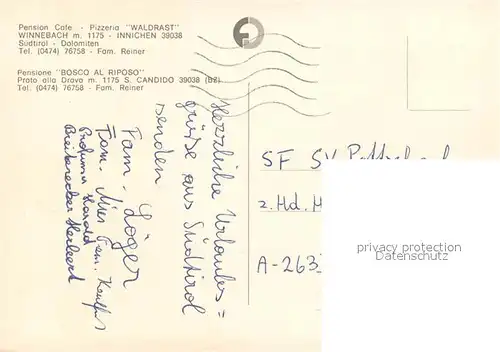 Pension Cafe - Pizzeria "WALDRAST"
WINNEBACH m. 1175 - INNICHEN 39038
Südtirol - Dolomiten
Tel. (0474) 76758 - Fam. Reiner
Pensione "BOSCO AL RIPOSO"
Prato alla Drava m. 1175 S. CANDIDO 39038 (BZ)
Tel. (0474) 76758 - Fam. Reiner
Herzliche Urlaubs=
grüße aus Südtirol
senden
Fam. Löger
Fam.
Harald
Herbert
SF SV
z. Hd.
A-263
privacy protection
Datenschutz